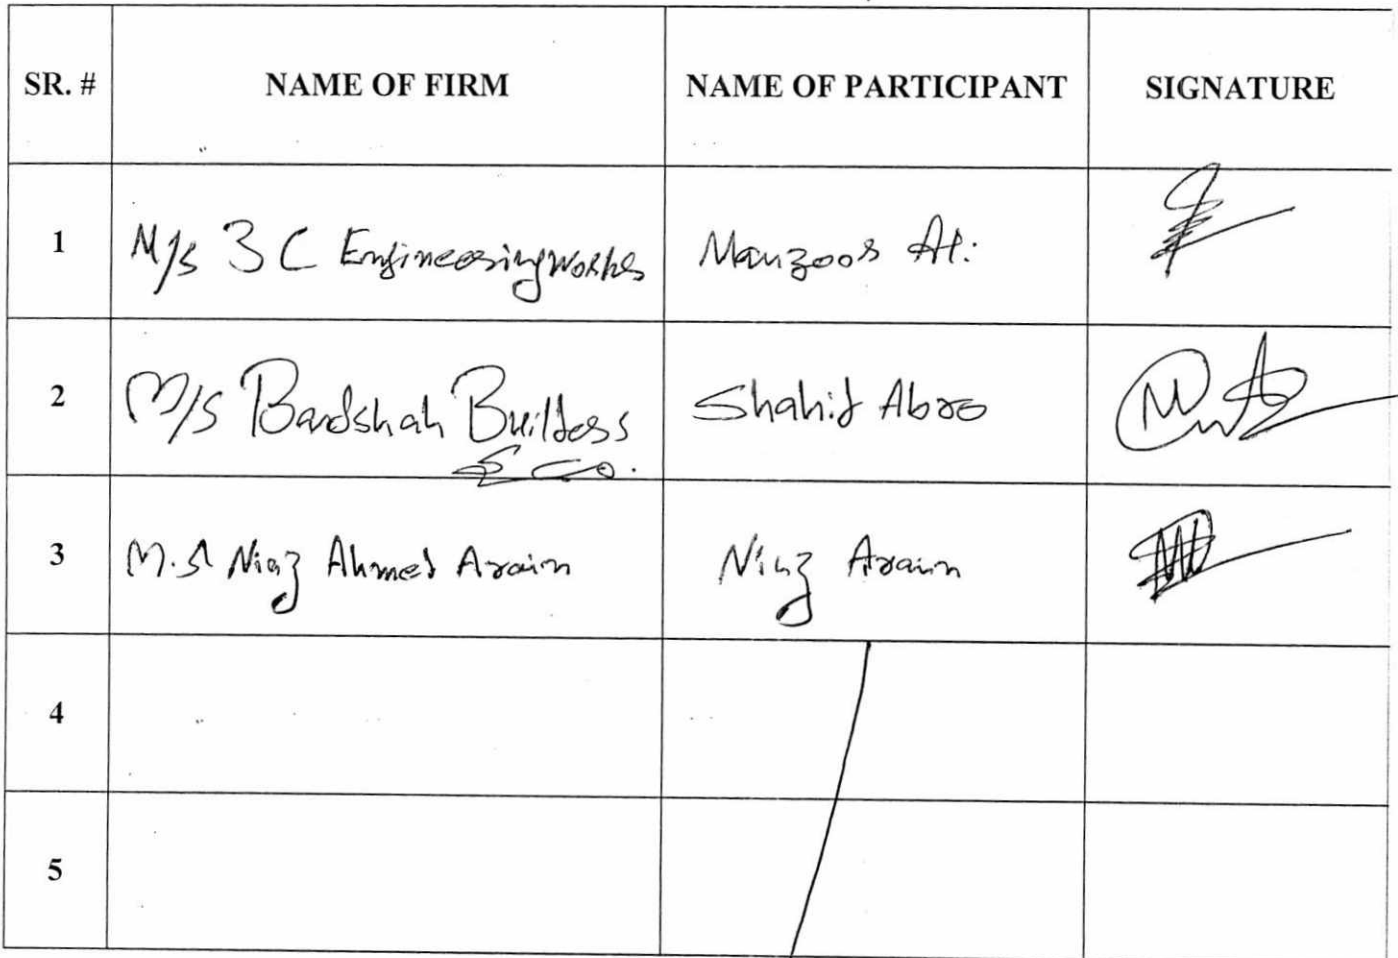 SR. # NAME OF FIRM NAME OF PARTICIPANT SIGNATURE
1 M/s 3 C Engineering Works Manzoor Ali
2 M/S Baadshah Builders Shahid Abro
& Co.
3 M.S Niaz Ahmed Arain Niaz Arain
4
5